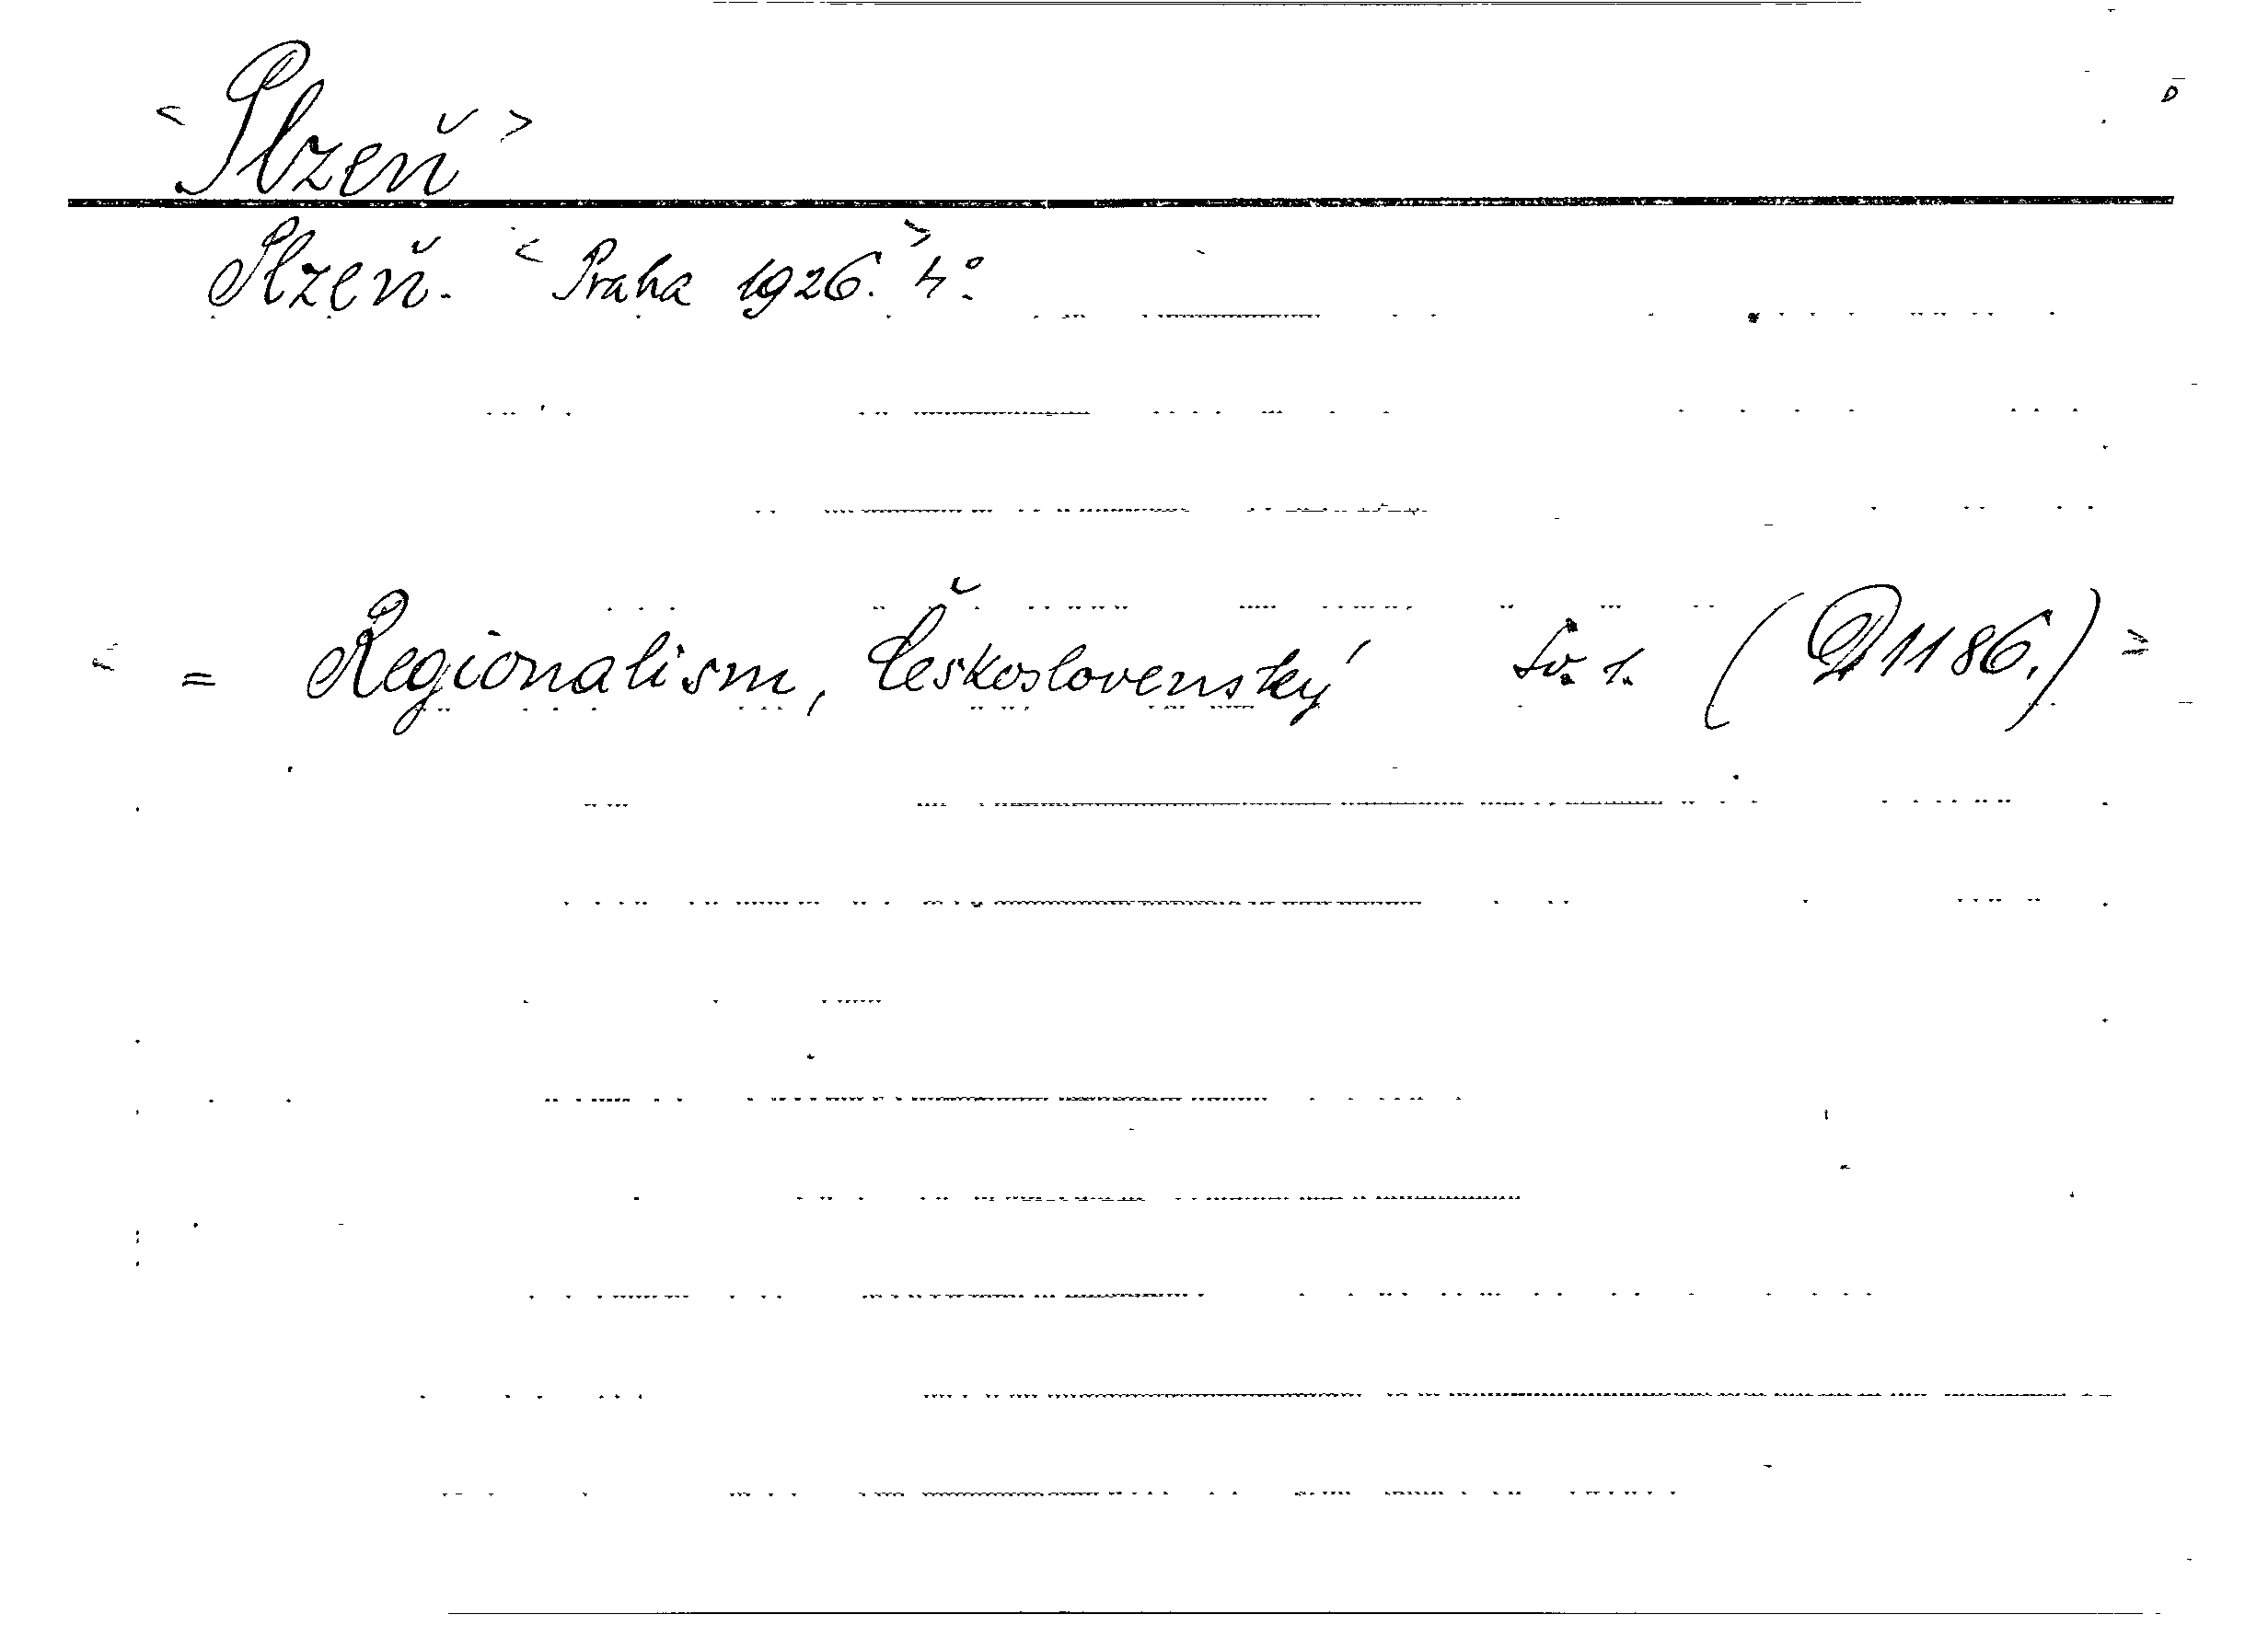 < Plzeň >
Plzeň. < Praha 1926. > 4°.
< = Regionalism, Československý Sv. 1. (D 1186.) >